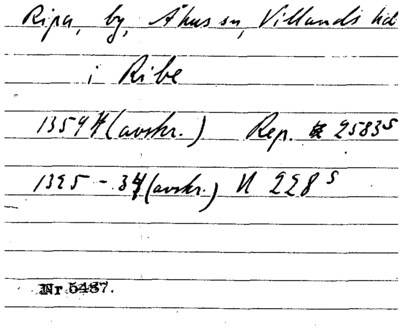 Ripa, by, Åhus sn, Villands hd
i Ribe
1354 (avskr.) Rep. 2583 s
1325 - 34 (avskr.) N 228 s
Nr 5487.